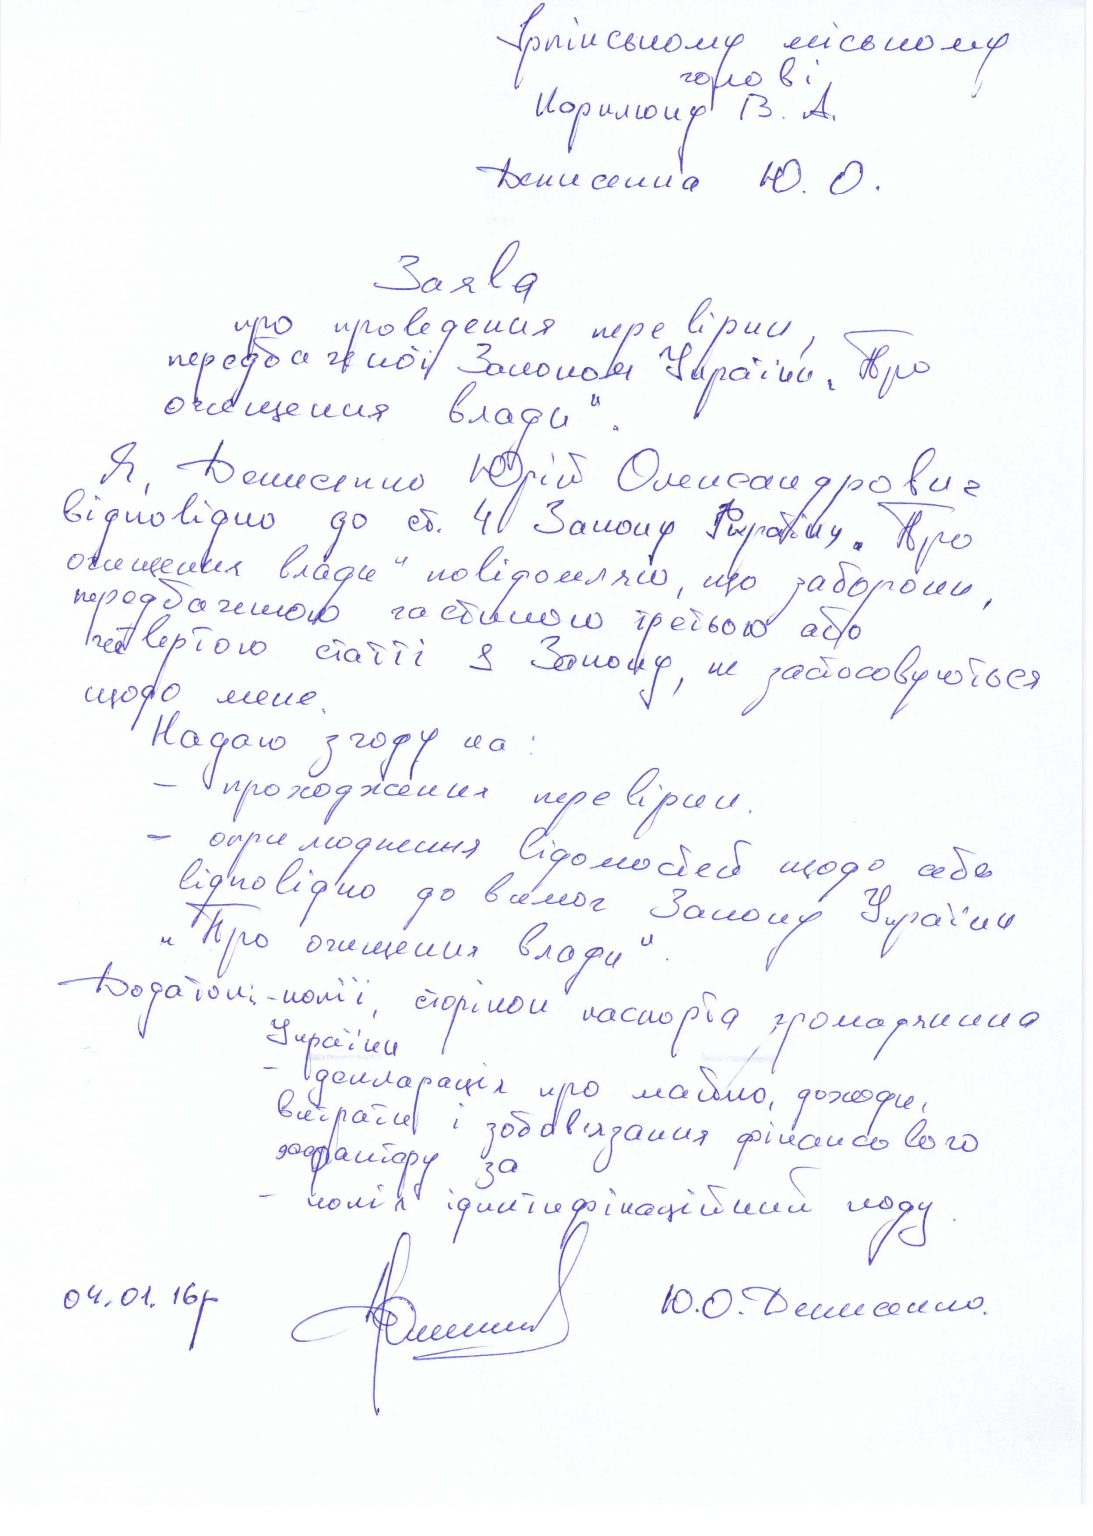 Ірпінському міському
голові
Карплюку В. А.
Денисенка Ю. О.
Заява
про проведення перевірки,
передбаченої Законом України „Про
очищення влади".
Я, Денисенко Юрій Олександрович
відповідно до ст. 4 Закону України „Про
очищення влади" повідомляю, що заборони,
передбаченою частиною третьою або
четвертою статті 1 Закону, не застосовуються
щодо мене.
Надаю згоду на:
- проходження перевірки.
- оприлюднення відомостей щодо себе
відповідно до вимог Закону України
„Про очищення влади".
Додатки: - копії, сторінок паспорта громадянина
України
- декларація про майно, доходи,
витрати і зобов'язання фінансового
характеру за
- копія ідентифікаційний коду.
04.01.16р Ю.О. Денисенко.